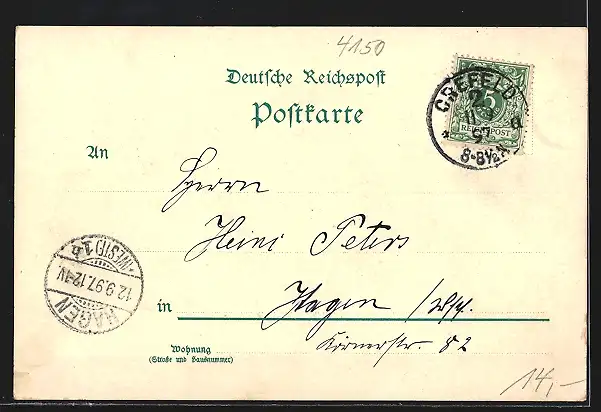 4150
Deutsche Reichspost
Postkarte
CREFELD
11 9
97
8-8½N
5
REICHSPOST
An
Herrn
Heini Peters
HAGEN
(WESTF) 1
12.9.97.12-1V
in Hagen /Wstf.
Körnerstr. 82
Wohnung
(Straße und Hausnummer)
14,-